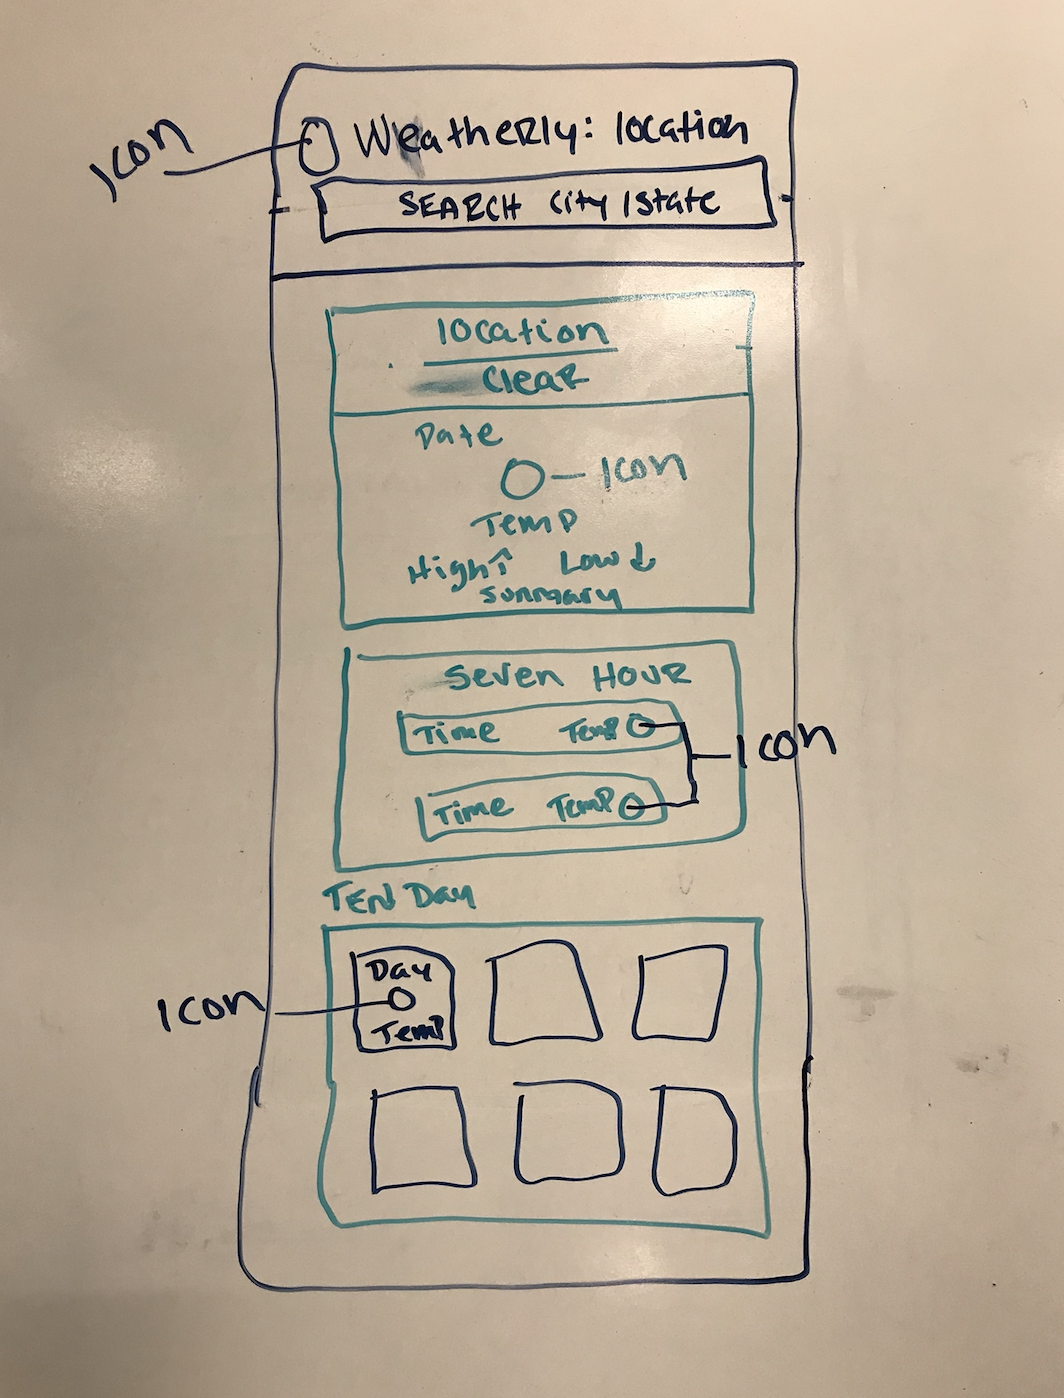 Icon
Weatherly: location
SEARCH City/State
location
Clear
Date
Icon
Temp
High↑ Low↓
Summary
Seven Hour
Time Temp
Icon
Time Temp
Ten Day
Day
Icon
Temp